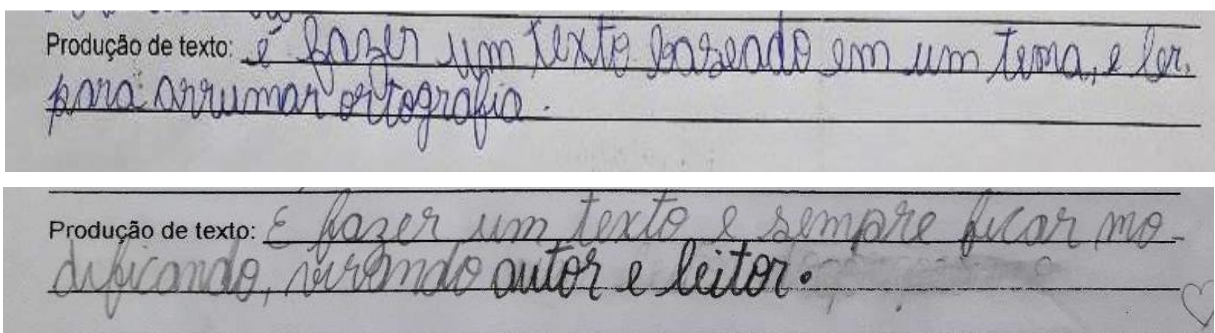 Produção de texto: é fazer um texto baseado em um tema, e ler.
para arrumar ortografia.
Produção de texto: É fazer um texto e sempre ficar mo-
dificando, virando autor e leitor.